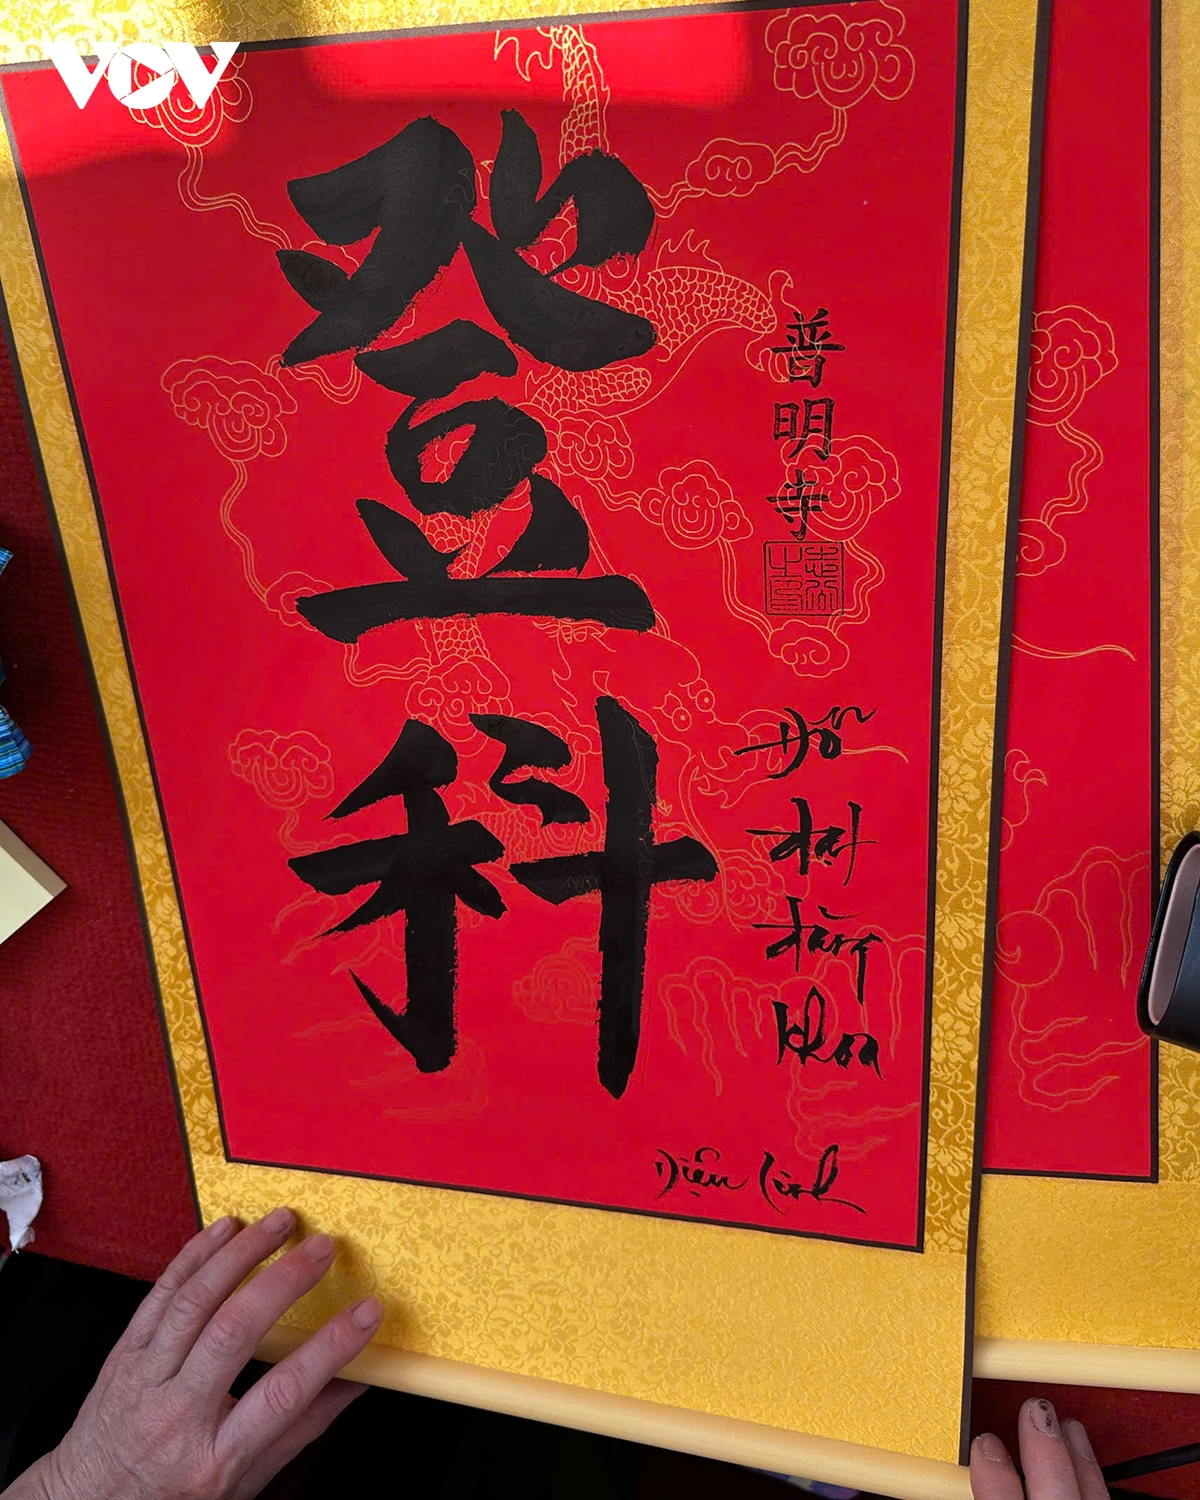 VOV
登科
普明寺
Đỗ
đạt
đăng
khoa
Diệu Linh